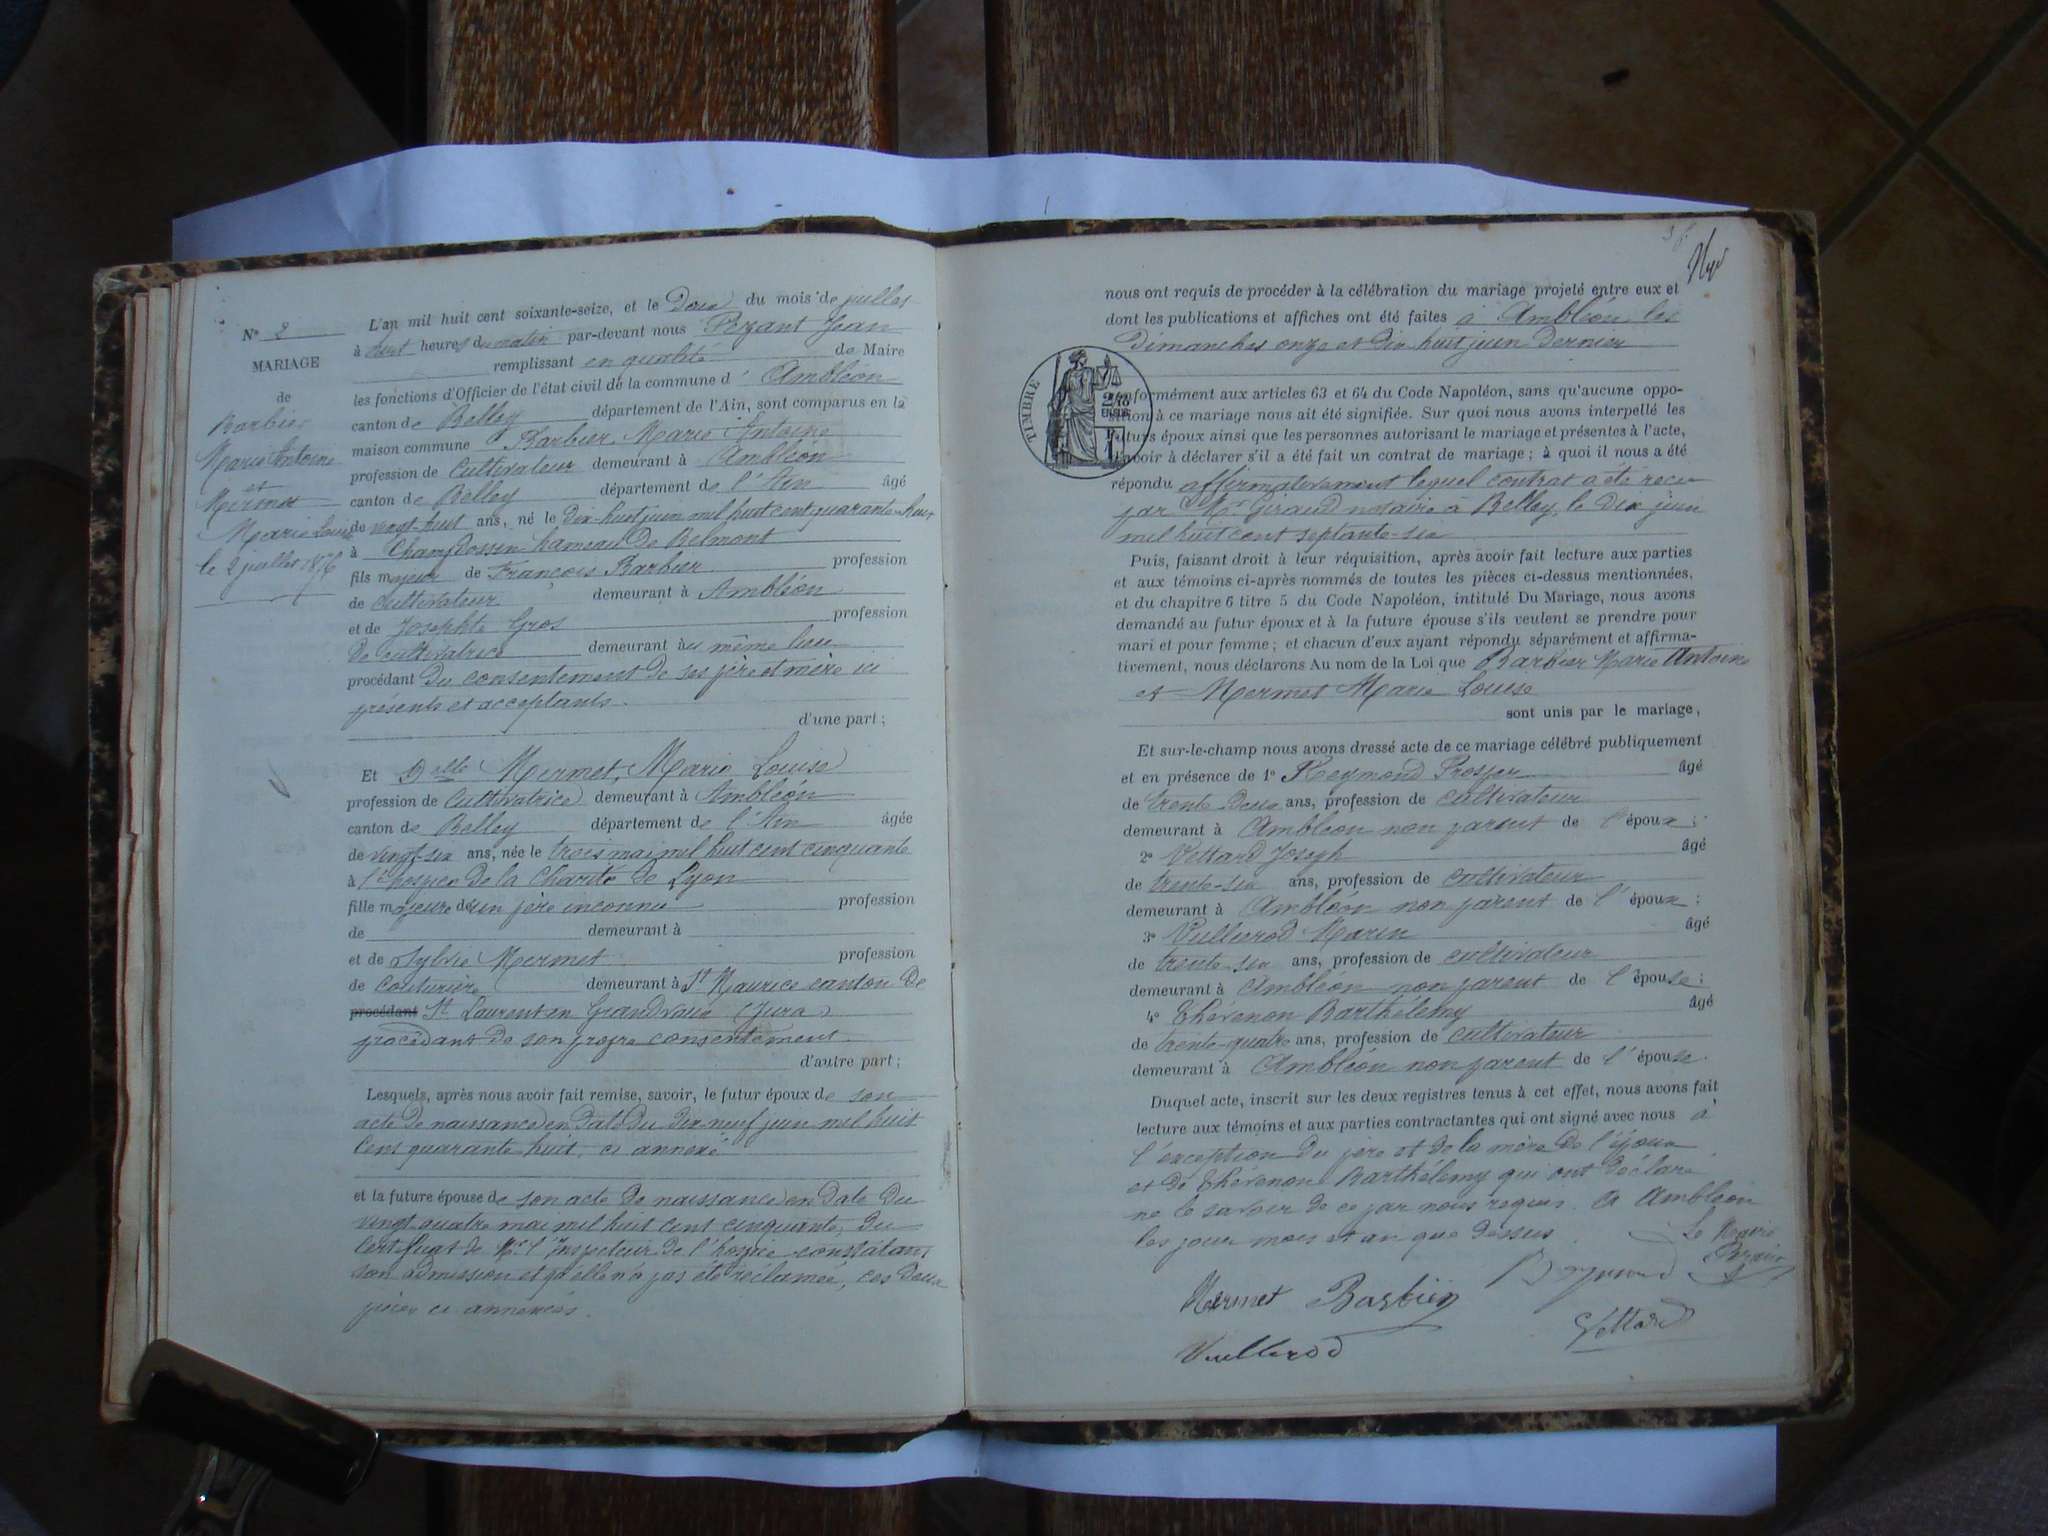 N° 2
MARIAGE
de
Barbier
Marie Antoine
et
Mermet
Marie Louise
le 2 juillet 1876
L'an mil huit cent soixante-seize, et le Deux du mois de juillet
à huit heures du matin par-devant nous Pezant Jean
remplissant en qualité de Maire
les fonctions d'Officier de l'état civil de la commune d' Ambléon
canton de Belley département de l'Ain, sont comparus en la
maison commune Barbier Marie Antoine
profession de Cultivateur demeurant à Ambléon
canton de Belley département de l'Ain âgé
de vingt-huit ans, né le Dix-huit juin mil huit cent quarante-huit
à Champdossin hameau de Belmont
fils majeur de François Barbier profession
de cultivateur demeurant à Ambléon
et de Josephte Gros profession
de cultivatrice demeurant au même lieu
procédant du consentement de ses père et mère ici
présents et acceptants.
d'une part;
Et Delle Mermet, Marie Louise
profession de Cultivatrice demeurant à Ambléon
canton de Belley département de l'Ain âgée
de vingt-six ans, née le trois mai mil huit cent cinquante
à l'hospice de la Charité de Lyon
fille majeure d'un père inconnu profession
de demeurant à
et de Sylvie Mermet profession
de Couturière demeurant à St Maurice canton de
procédant St Laurent en Grandvaux (Jura)
procédant de son propre consentement
d'autre part;
Lesquels, après nous avoir fait remise, savoir, le futur époux de son
acte de naissance en date du dix neuf juin mil huit
cent quarante huit, ci annexé
et la future épouse de son acte de naissance en date du
vingt quatre mai mil huit cent cinquante, du
certificat de Mr l'Inspecteur de l'hospice constatant
son admission et qu'elle n'a pas été réclamée, ces deux
pièces ci annexées.
nous ont requis de procéder à la célébration du mariage projeté entre eux et
dont les publications et affiches ont été faites à Ambléon les
Dimanches onze et dix huit juin dernier
TIMBRE
conformément aux articles 63 et 64 du Code Napoléon, sans qu'aucune oppo-
sition à ce mariage nous ait été signifiée. Sur quoi nous avons interpellé les
futurs époux ainsi que les personnes autorisant le mariage et présentes à l'acte,
d'avoir à déclarer s'il a été fait un contrat de mariage; à quoi il nous a été
répondu affirmativement lequel contrat a été reçu
par Me Giraud notaire à Belley, le dix juin
mil huit cent septante-six
Puis, faisant droit à leur réquisition, après avoir fait lecture aux parties
et aux témoins ci-après nommés de toutes les pièces ci-dessus mentionnées,
et du chapitre 6 titre 5 du Code Napoléon, intitulé Du Mariage, nous avons
demandé au futur époux et à la future épouse s'ils veulent se prendre pour
mari et pour femme; et chacun d'eux ayant répondu séparément et affirma-
tivement, nous déclarons Au nom de la Loi que Barbier Marie Antoine
et Mermet Marie Louise
sont unis par le mariage,
Et sur-le-champ nous avons dressé acte de ce mariage célébré publiquement
et en présence de 1° Reymond Prosper âgé
de trente-deux ans, profession de cultivateur
demeurant à Ambléon non parent de l'époux;
2° Vettard Joseph âgé
de trente-six ans, profession de cultivateur
demeurant à Ambléon non parent de l'époux;
3° Vullierod Marin âgé
de trente six ans, profession de cultivateur
demeurant à Ambléon non parent de l'épouse;
4° Thévenon Barthélemy âgé
de trente-quatre ans, profession de cultivateur
demeurant à Ambléon non parent de l'épouse.
Duquel acte, inscrit sur les deux registres tenus à cet effet, nous avons fait
lecture aux témoins et aux parties contractantes qui ont signé avec nous à
l'exception du père et de la mère de l'époux
et de Thévenon Barthélemy qui ont déclaré
ne le savoir de ce par nous requis. A Ambléon
les jour mois et an que dessus.
Le Maire
Pezant
Mermet Barbier
Vettard
Vullierod